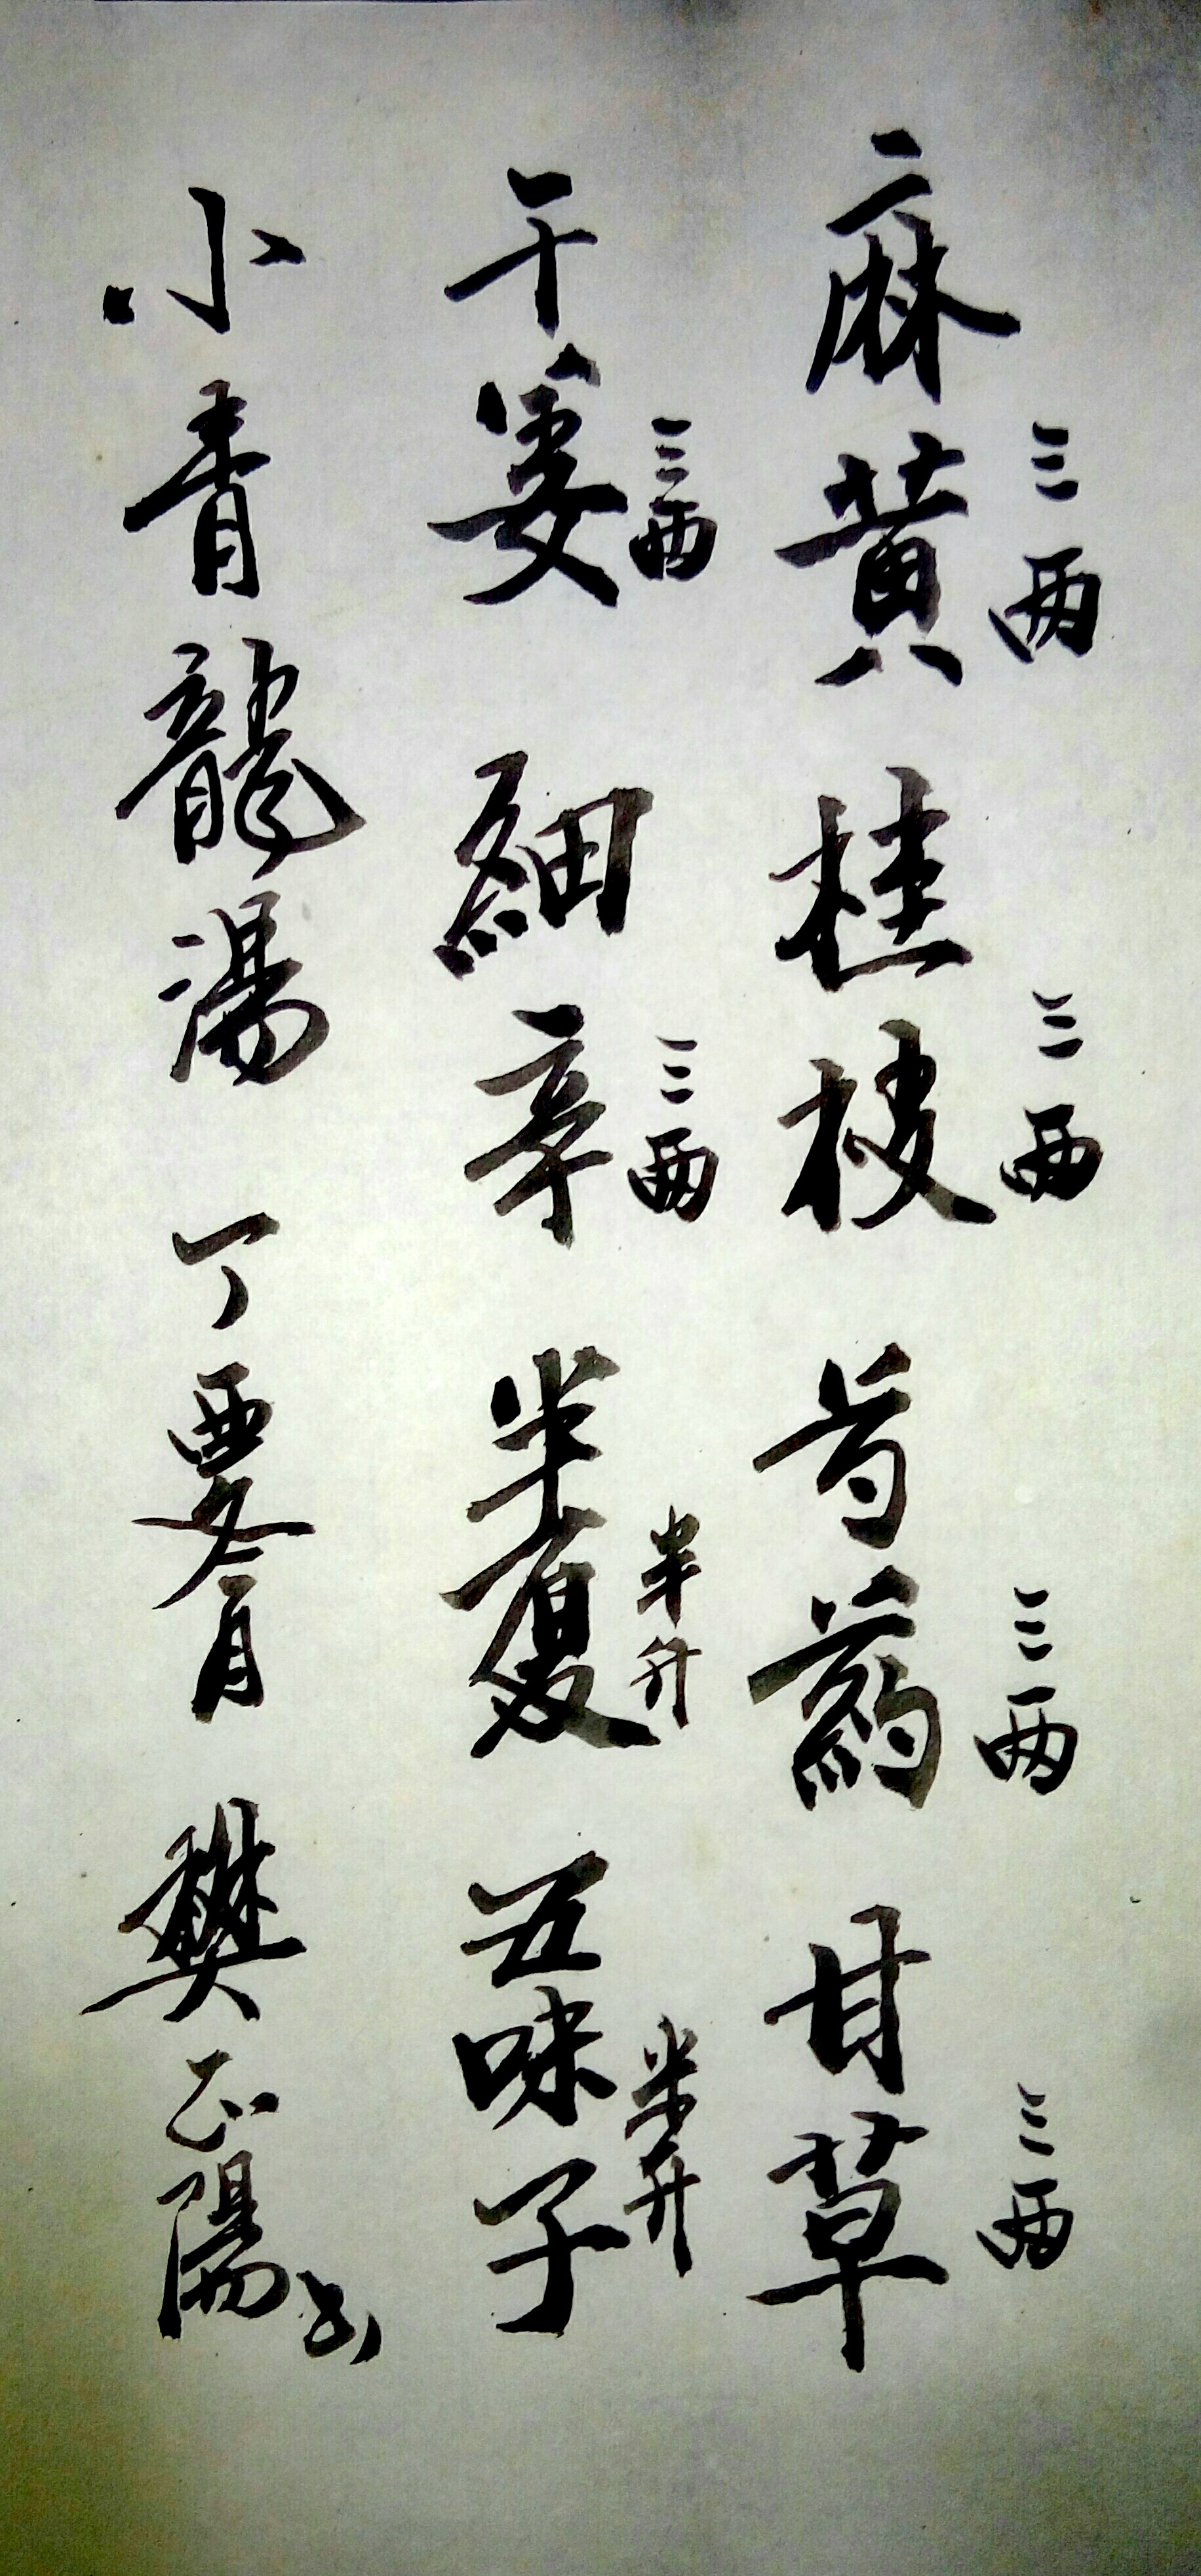 麻黄三两 桂枝三两 芍藥三两 甘草三两
干姜三两 細辛三两 半夏半升 五味子半升
小青龍湯 丁酉冬月 樊正陽书